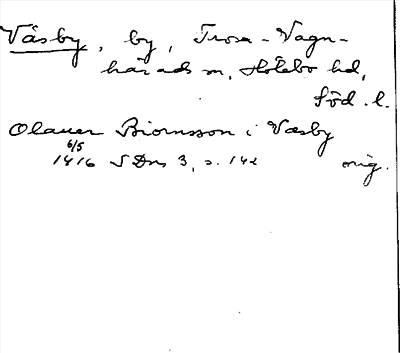 Väsby, by, Trosa-Vagn-
härads sn, Hölebo hd,
Söd. l.
Olauer Biornsson i Wæsby
6/5
1416 SDns 3, s. 142 orig.